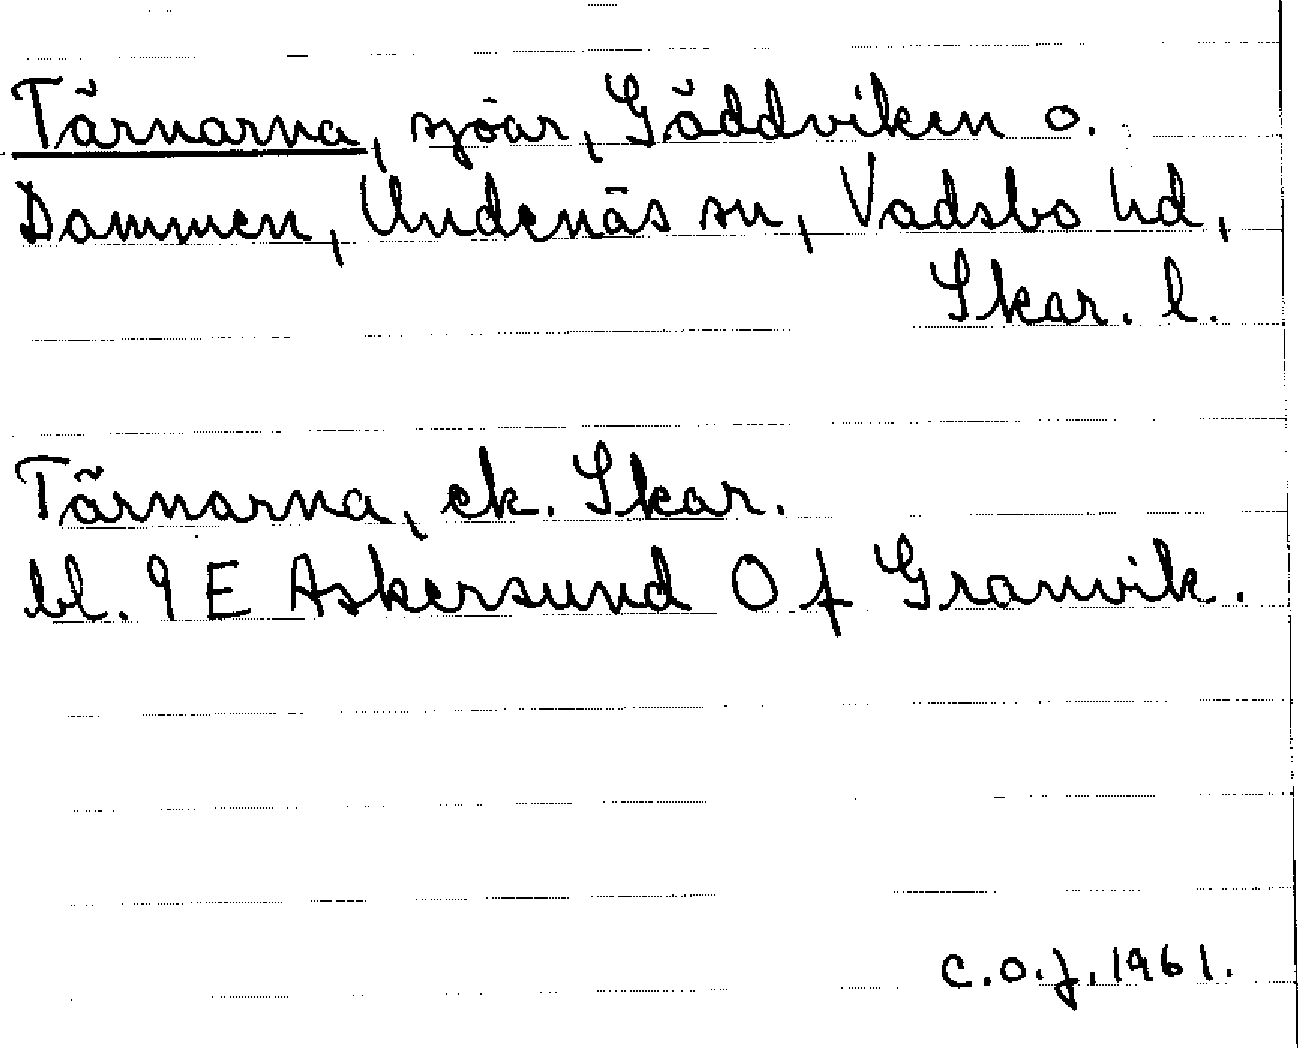 Tärnarna, sjöar, Gäddviken o.
Dammen, Undenäs sn, Vadsbo hd,
Skar. l.
Tärnarna, ek. Skar.
bl. 9 E Askersund O f Granvik.
C.O.J. 1961.